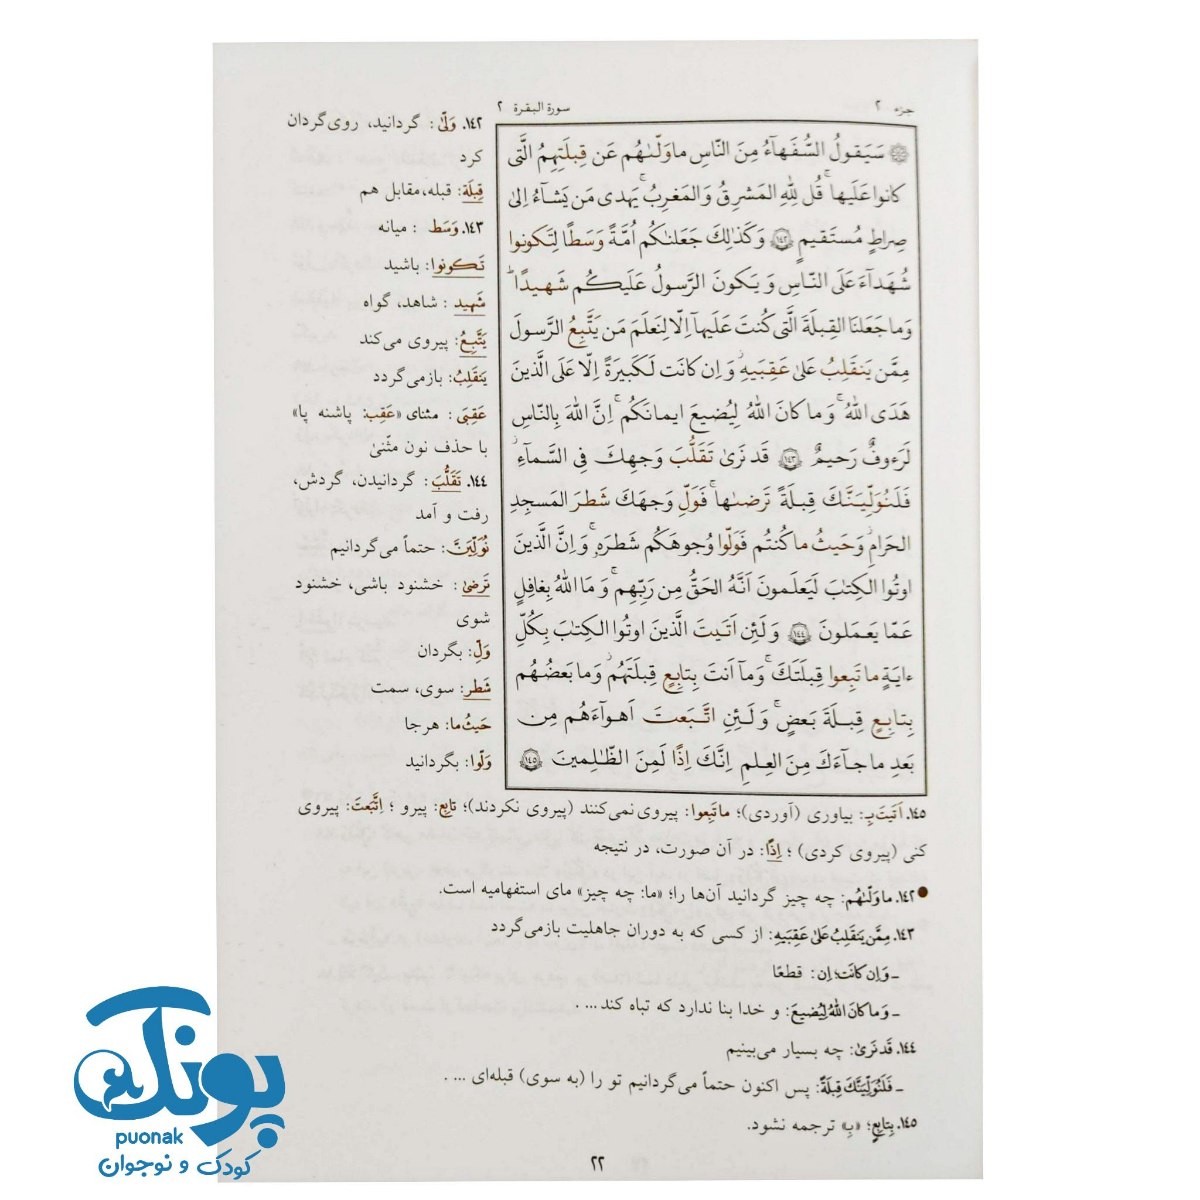 جزء ۲
سورة البقرة ۲
سَيَقولُ السُّفَهاۤءُ مِنَ النّاسِ ماوَلّىٰهُم عَن قِبلَتِهِمُ الَّتى
كانوا عَلَيها ۚ قُل لِلّٰهِ المَشرِقُ وَالمَغرِبُ ۚ يَهدى مَن يَشاۤءُ اِلىٰ
صِراطٍ مُستَقيمٍ ﴿١٤٢﴾ وَكَذٰلِكَ جَعَلنٰكُم اُمَّةً وَسَطًا لِتَكونوا
شُهَداۤءَ عَلَى النّاسِ وَ يَكونَ الرَّسولُ عَلَيكُم شَهيدًا ۗ
وَما جَعَلنَا القِبلَةَ الَّتى كُنتَ عَلَيهاۤ اِلّا لِنَعلَمَ مَن يَتَّبِعُ الرَّسولَ
مِمَّن يَنقَلِبُ عَلىٰ عَقِبَيهِ ۚ وَاِن كانَت لَكَبيرَةً اِلّا عَلَى الَّذينَ
هَدَى اللّٰهُ ۗ وَما كانَ اللّٰهُ لِيُضيعَ ايمانَكُم ۚ اِنَّ اللّٰهَ بِالنّاسِ
لَرَءوفٌ رَحيمٌ ﴿١٤٣﴾ قَد نَرىٰ تَقَلُّبَ وَجهِكَ فِى السَّماۤءِ ۖ
فَلَنُوَلِّيَنَّكَ قِبلَةً تَرضىٰها ۚ فَوَلِّ وَجهَكَ شَطرَ المَسجِدِ
الحَرامِ ۚ وَحَيثُ ماكُنتُم فَوَلّوا وُجوهَكُم شَطرَهٗ ۗ وَاِنَّ الَّذينَ
اوتُوا الكِتٰبَ لَيَعلَمونَ اَنَّهُ الحَقُّ مِن رَبِّهِم ۗ وَمَا اللّٰهُ بِغافِلٍ
عَمّا يَعمَلونَ ﴿١٤٤﴾ وَلَئِن اَتَيتَ الَّذينَ اوتُوا الكِتٰبَ بِكُلِّ
ءايَةٍ ما تَبِعوا قِبلَتَكَ ۚ وَماۤ اَنتَ بِتابِعٍ قِبلَتَهُم ۚ وَما بَعضُهُم
بِتابِعٍ قِبلَةَ بَعضٍ ۚ وَلَئِنِ اتَّبَعتَ اَهواۤءَهُم مِن
بَعدِ ماجاۤءَكَ مِنَ العِلمِ اِنَّكَ اِذًا لَمِنَ الظّٰلِمينَ ﴿١٤٥﴾
۱۴۲. وَلّىٰ: گردانید، روی‌گردان
کرد
قِبلَة: قبله، مقابل هم
۱۴۳. وَسَط : میانه
تَكونوا: باشید
شَهيد : شاهد، گواه
يَتَّبِعُ: پیروی می‌کند
يَنقَلِبُ: بازمی‌گردد
عَقِبَى : مثنای «عَقِب: پاشنه پا»
با حذف نون مثّنیٰ
۱۴۴. تَقَلُّبَ: گردانیدن، گردش،
رفت و آمد
نُوَلِّيَنَّ: حتماً می‌گردانیم
تَرضىٰ : خشنود باشی، خشنود
شوی
وَلِّ: بگردان
شَطر: سوی، سمت
حَيثُ‌ما: هرجا
وَلّوا: بگردانید
۱۴۵. اَتَيتَ بِـ: بیاوری (آوردی)؛ ماتَبِعوا: پیروی نمی‌کنند (پیروی نکردند)؛ تابِع: پیرو ؛ اتَّبَعتَ: پیروی
کنی (پیروی کردی) ؛ اِذًا: در آن صورت، در نتیجه
●۱۴۲. ماوَلّىٰهُم: چه چیز گردانید آن‌ها را؛ «ما: چه چیز» مای استفهامیه است.
۱۴۳. مِمَّن يَنقَلِبُ عَلىٰ عَقِبَيهِ: از کسی که به دوران جاهلیت بازمی‌گردد
ـ وَاِن كانَت؛ اِن: قطعًا
ـ وَما كانَ اللّٰهُ لِيُضيعَ: و خدا بنا ندارد که تباه کند... .
۱۴۴. قَد نَرىٰ: چه بسیار می‌بینیم
ـ فَلَنُوَلِّيَنَّكَ قِبلَةً: پس اکنون حتماً می‌گردانیم تو را (به سوی) قبله‌ای ... .
۱۴۵. بِتابِعٍ؛ «بِـ» ترجمه نشود.
۲۲
پونک
puonak
کودک و نوجوان